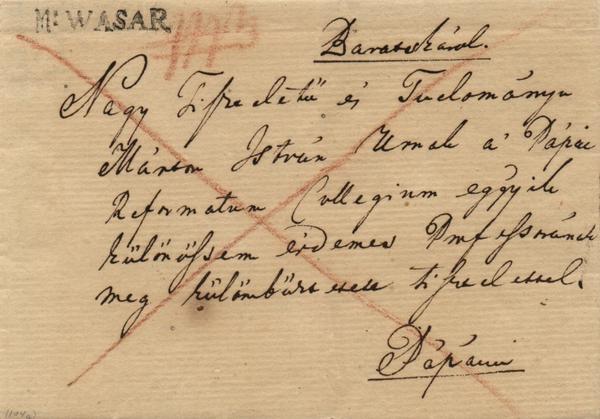 M: WASAR
Baratskárol.
Nagy Tiszteletű és Tudományu
Márton István Urnak a' Pápai
Reformatum Collegium eggyik
különössem érdemes Professorának
meg külömböztetett tisztelettel.
Pápán